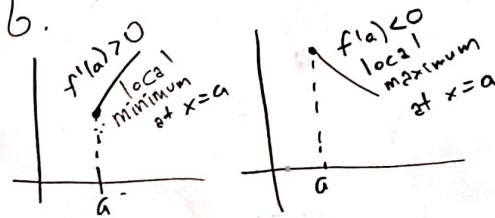 6.
f'(a)>0
local
minimum
at x=a
a
f'(a)<0
local
maximum
at x=a
a